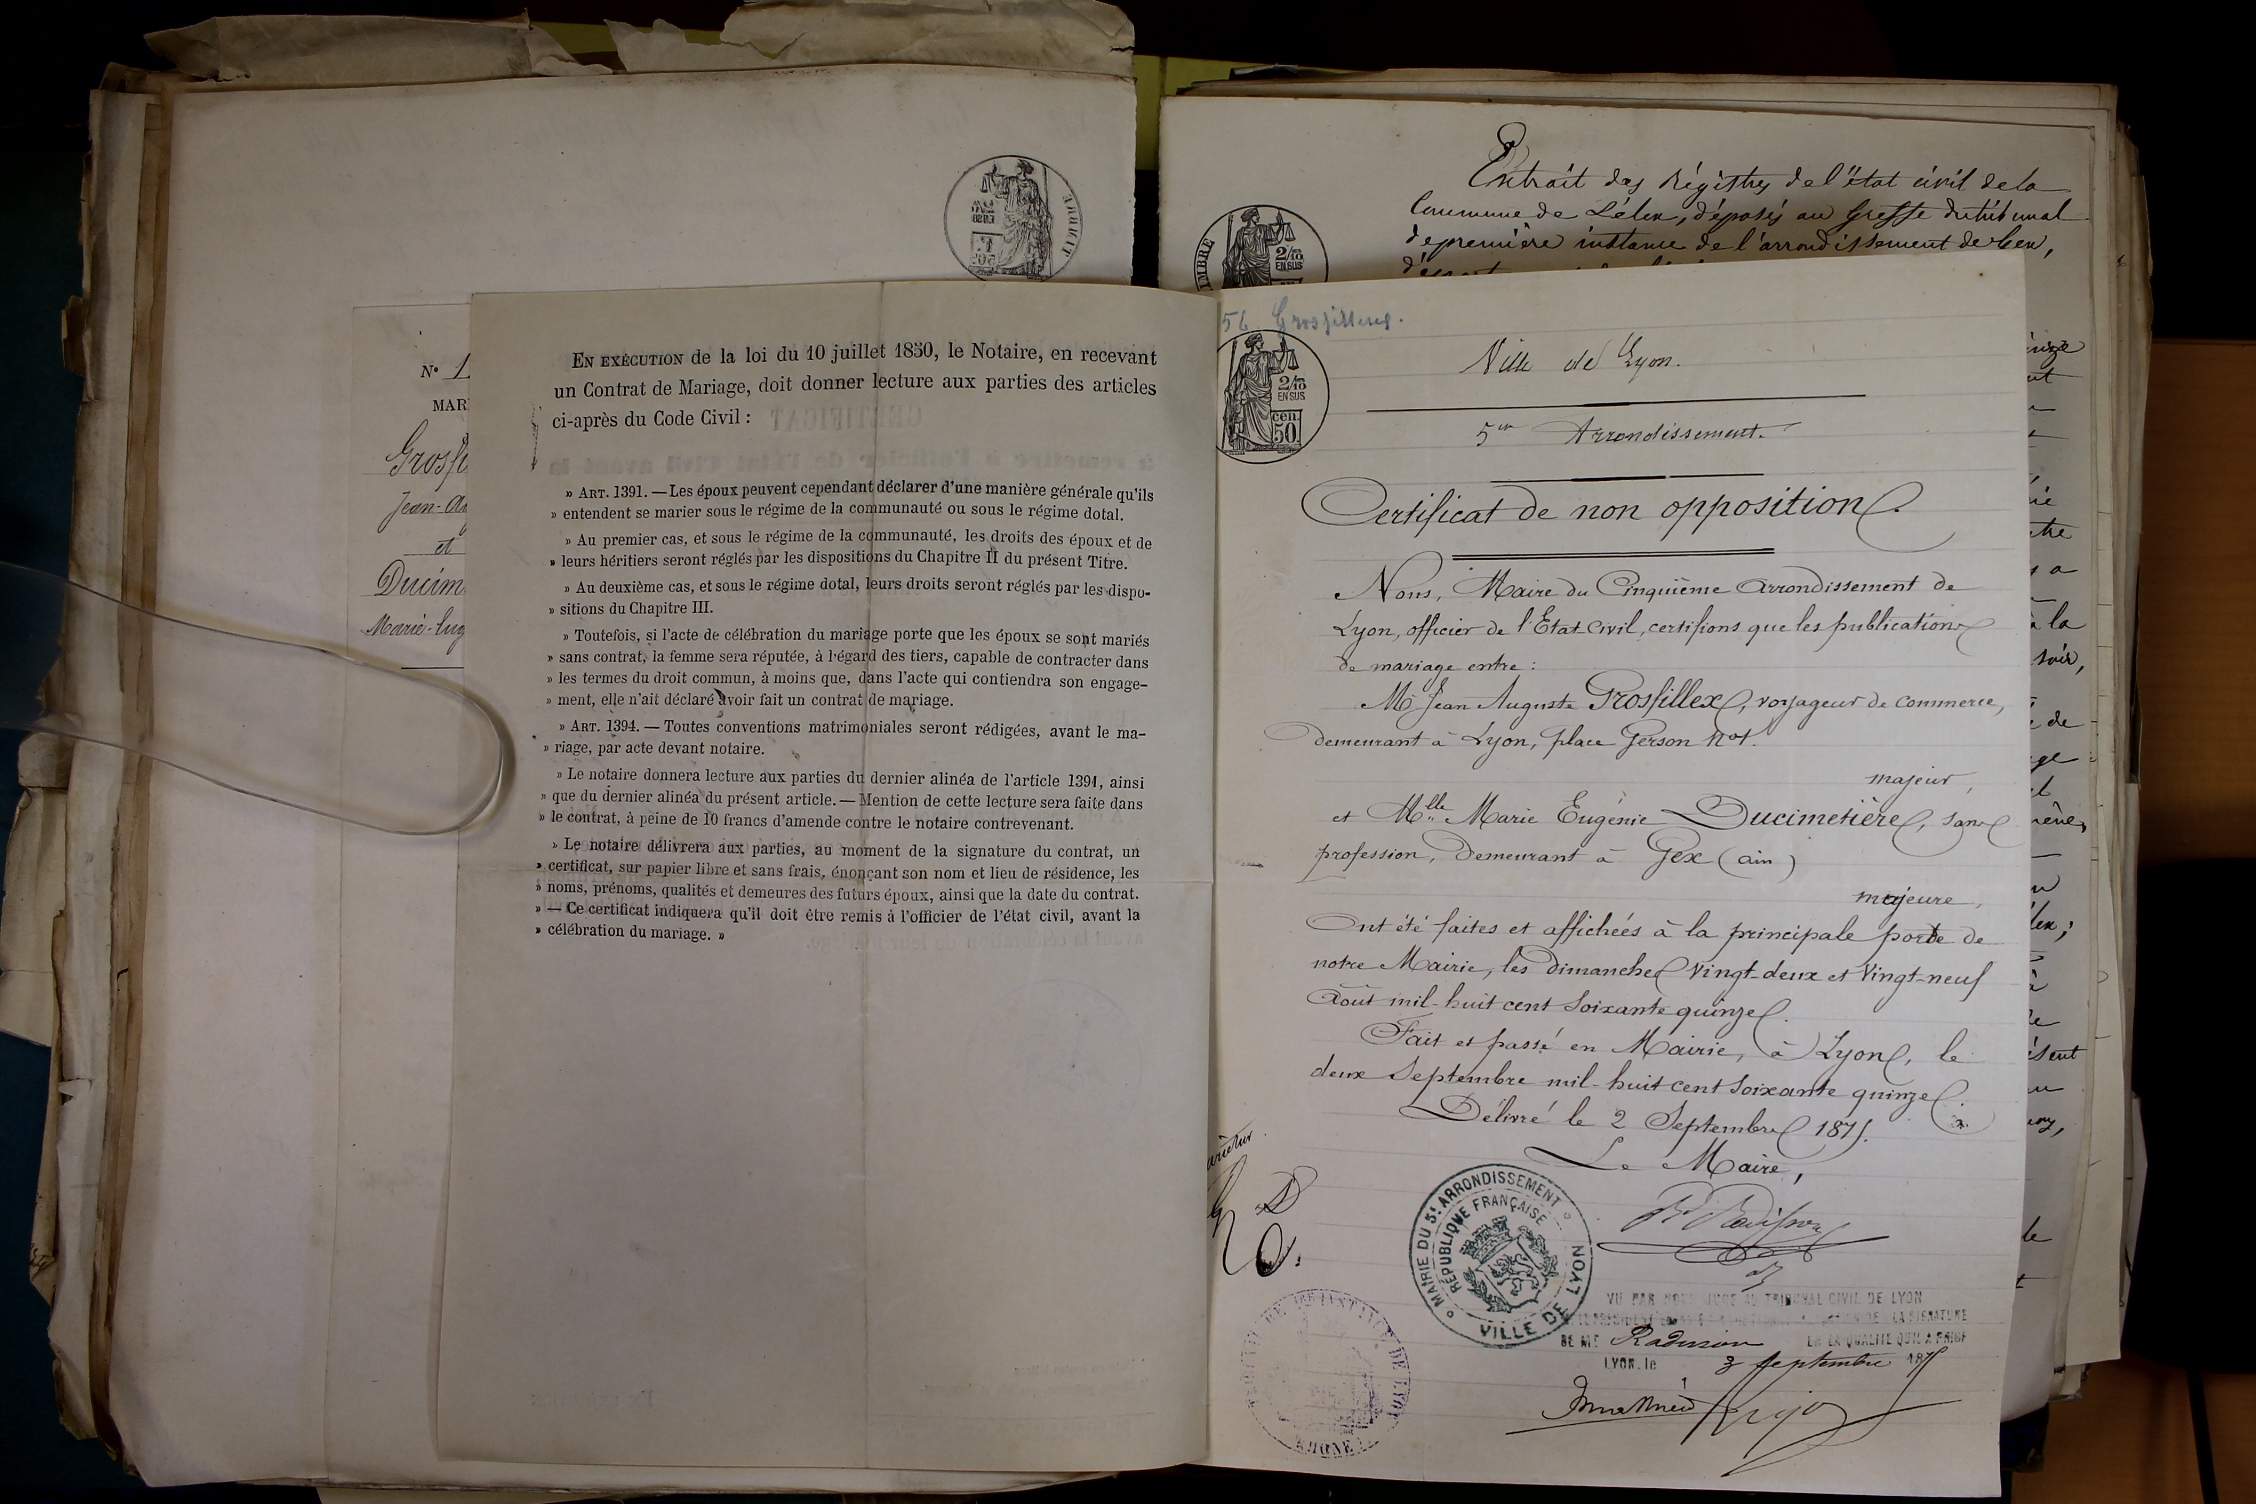 N° 1
MAR
Grosfi
Jean-Au
et
Ducim
Marie-Eug
EN EXÉCUTION de la loi du 10 juillet 1850, le Notaire, en recevant
un Contrat de Mariage, doit donner lecture aux parties des articles
ci-après du Code Civil :
» ART. 1391. — Les époux peuvent cependant déclarer d'une manière générale qu'ils
» entendent se marier sous le régime de la communauté ou sous le régime dotal.
» Au premier cas, et sous le régime de la communauté, les droits des époux et de
» leurs héritiers seront réglés par les dispositions du Chapitre II du présent Titre.
» Au deuxième cas, et sous le régime dotal, leurs droits seront réglés par les dispo-
» sitions du Chapitre III.
» Toutefois, si l'acte de célébration du mariage porte que les époux se sont mariés
» sans contrat, la femme sera réputée, à l'égard des tiers, capable de contracter dans
» les termes du droit commun, à moins que, dans l'acte qui contiendra son engage-
» ment, elle n'ait déclaré avoir fait un contrat de mariage.
» ART. 1394. — Toutes conventions matrimoniales seront rédigées, avant le ma-
» riage, par acte devant notaire.
» Le notaire donnera lecture aux parties du dernier alinéa de l'article 1391, ainsi
» que du dernier alinéa du présent article. — Mention de cette lecture sera faite dans
» le contrat, à peine de 10 francs d'amende contre le notaire contrevenant.
» Le notaire délivrera aux parties, au moment de la signature du contrat, un
» certificat, sur papier libre et sans frais, énonçant son nom et lieu de résidence, les
» noms, prénoms, qualités et demeures des futurs époux, ainsi que la date du contrat.
» — Ce certificat indiquera qu'il doit être remis à l'officier de l'état civil, avant la
» célébration du mariage. »
Extrait des Régistres de l'état civil de la
Commune de Lélex, déposés au Greffe du tribunal
de première instance de l'arrondissement de Gex,
TIMBRE
2/10
EN SUS
56 Grosfillex.
2/10
EN SUS
cen.
50.
Ville de Lyon.
5me Arrondissement.
Certificat de non opposition.
Nous, Maire du Cinquième Arrondissement de
Lyon, officier de l'Etat Civil, certifions que les publications
de mariage entre :
Mr Jean Auguste Grosfillex, voyageur de commerce,
demeurant à Lyon, place Gerson n° 1.
majeur,
et Melle Marie Eugénie Ducimetière, sans
profession, demeurant à Gex (ain)
majeure,
Ont été faites et affichées à la principale porte de
notre Mairie, les Dimanches vingt-deux et vingt-neuf
Août mil-huit cent soixante quinze.
Fait et passé en Mairie, à Lyon, le
deux Septembre mil-huit cent soixante quinze.
Délivré le 2 Septembre 1875.
Le Maire,
MAIRIE DU 5e ARRONDISSEMENT
RÉPUBLIQUE FRANÇAISE
VILLE DE LYON
VU PAR NOUS JUGE AU TRIBUNAL CIVIL DE LYON
LA SIGNATURE
DE Mr Radisson EN LA QUALITE QU'IL A PRISE
LYON, le 3 Septembre 1875